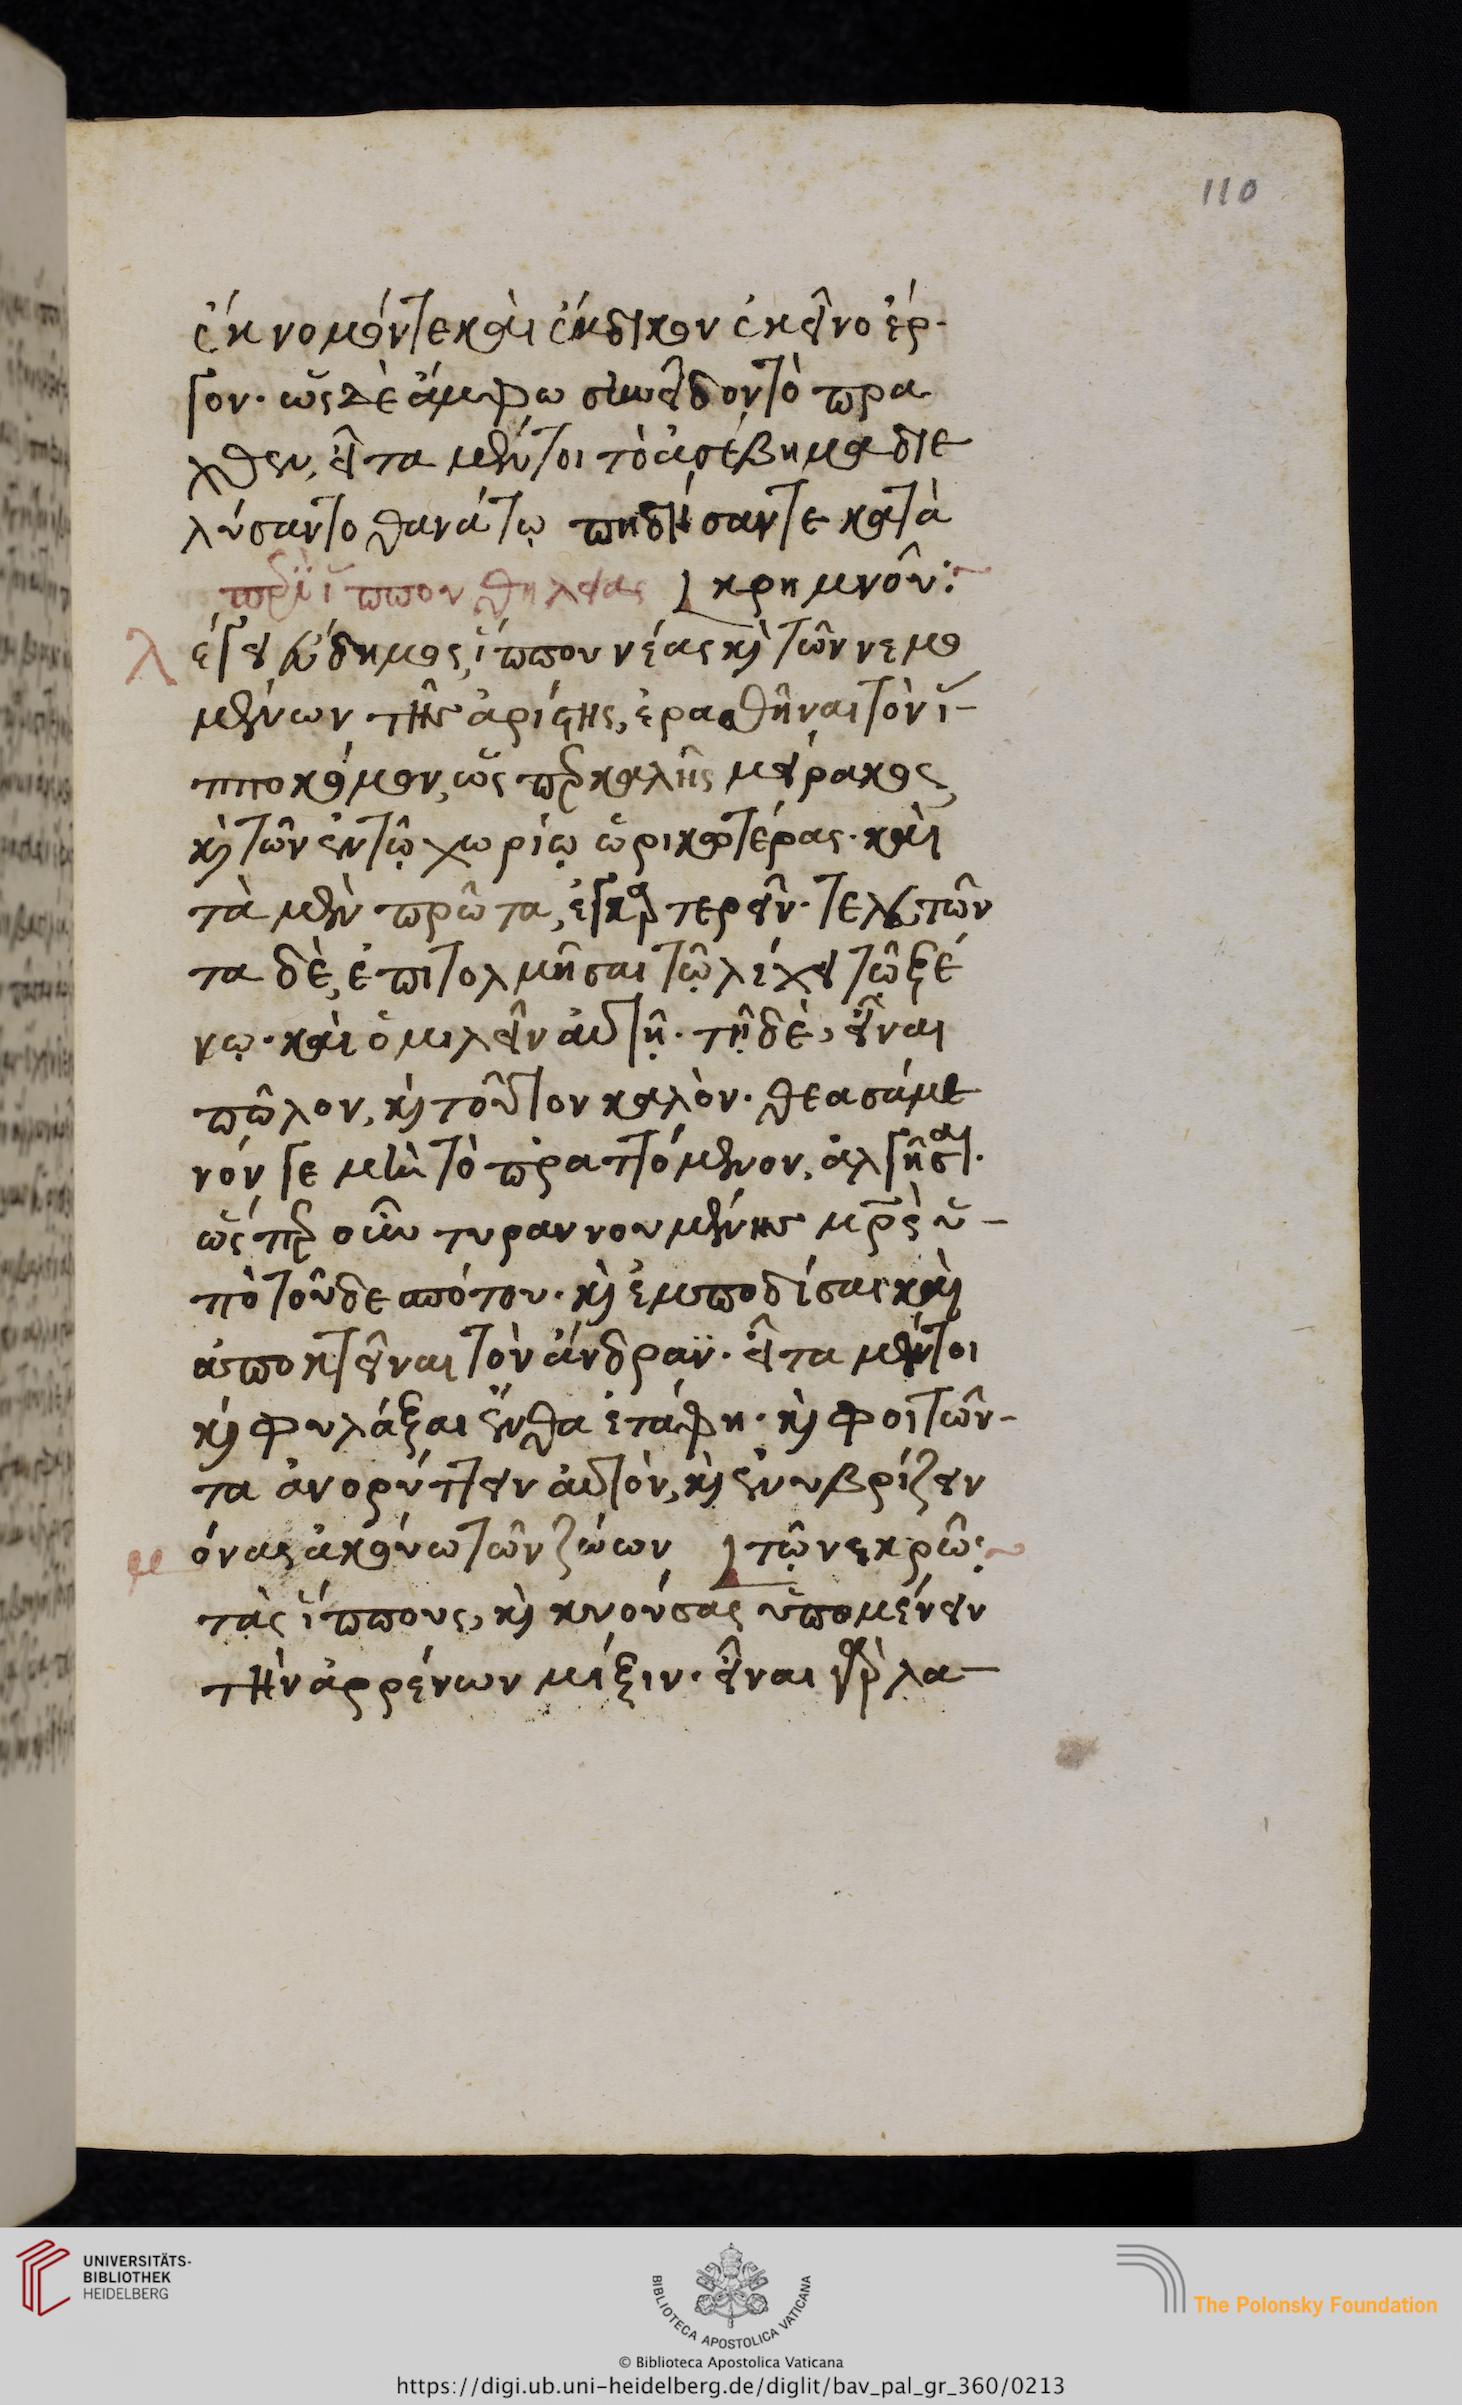 110
ἔκνομόν τε καὶ ἔκδικον ἐκεῖνο ἔρ-
γον. ὡς δὲ ἄμφω συνεῖδον τὸ πρα
χθὲν, εἶτα μέντοι τὸ ἀσέβημα διε
λύσαντο θανάτῳ πηδήσαντε κατὰ
περὶ ἵππου θηλείας κρημνοῦ:~
λ έγει εὔδημος, ἵππου νέας κ τῶν νεμο
μένων τῆς ἀρίστης, ἐρασθῆναι τὸν ἱ-
πποκόμον, ὥσπερ καλῆς μείρακος
κ τῶν ἐν τῷ χωρίῳ ὡρικωτέρας. καὶ
τὰ μὲν πρῶτα, ἐγκαρτερεῖν. τελευτῶν
τα δὲ, ἐπιτολμῆσαι τῷ λέχει τῷ ξέ
νῳ. καὶ ὁμιλεῖν αὐτῇ. τῇ δὲ, εἶναι
πῶλον, κ τοῦτον καλὸν. θεασάμε
νόν γε μὴν τὸ πραττόμενον, ἀλγῆσαι.
ὥσπερ οὖν τυραννουμένης μρς ὑ-
πὸ τοῦ δεσπότου. κ ἐμποδίσας καὶ
ἀποκτεῖναι τὸν ἄνδρα. εἶτα μέντοι
κ φυλάξαι ἔνθα ἐτάφη. κ φοιτῶν-
τα ἀνορύττειν αὐτὸν, κ ἐνυβρίζειν
μ όνας ἀκούω τῶν ζώων τῷ νεκρῷ:~
τὰς ἵππους, κ κυούσας ὑπομένειν
τὴν ἀρρένων μίξιν. εἶναι γὰρ λα-
UNIVERSITÄTS-
BIBLIOTHEK
HEIDELBERG
BIBLIOTECA APOSTOLICA VATICANA
The Polonsky Foundation
© Biblioteca Apostolica Vaticana
https://digi.ub.uni-heidelberg.de/diglit/bav_pal_gr_360/0213